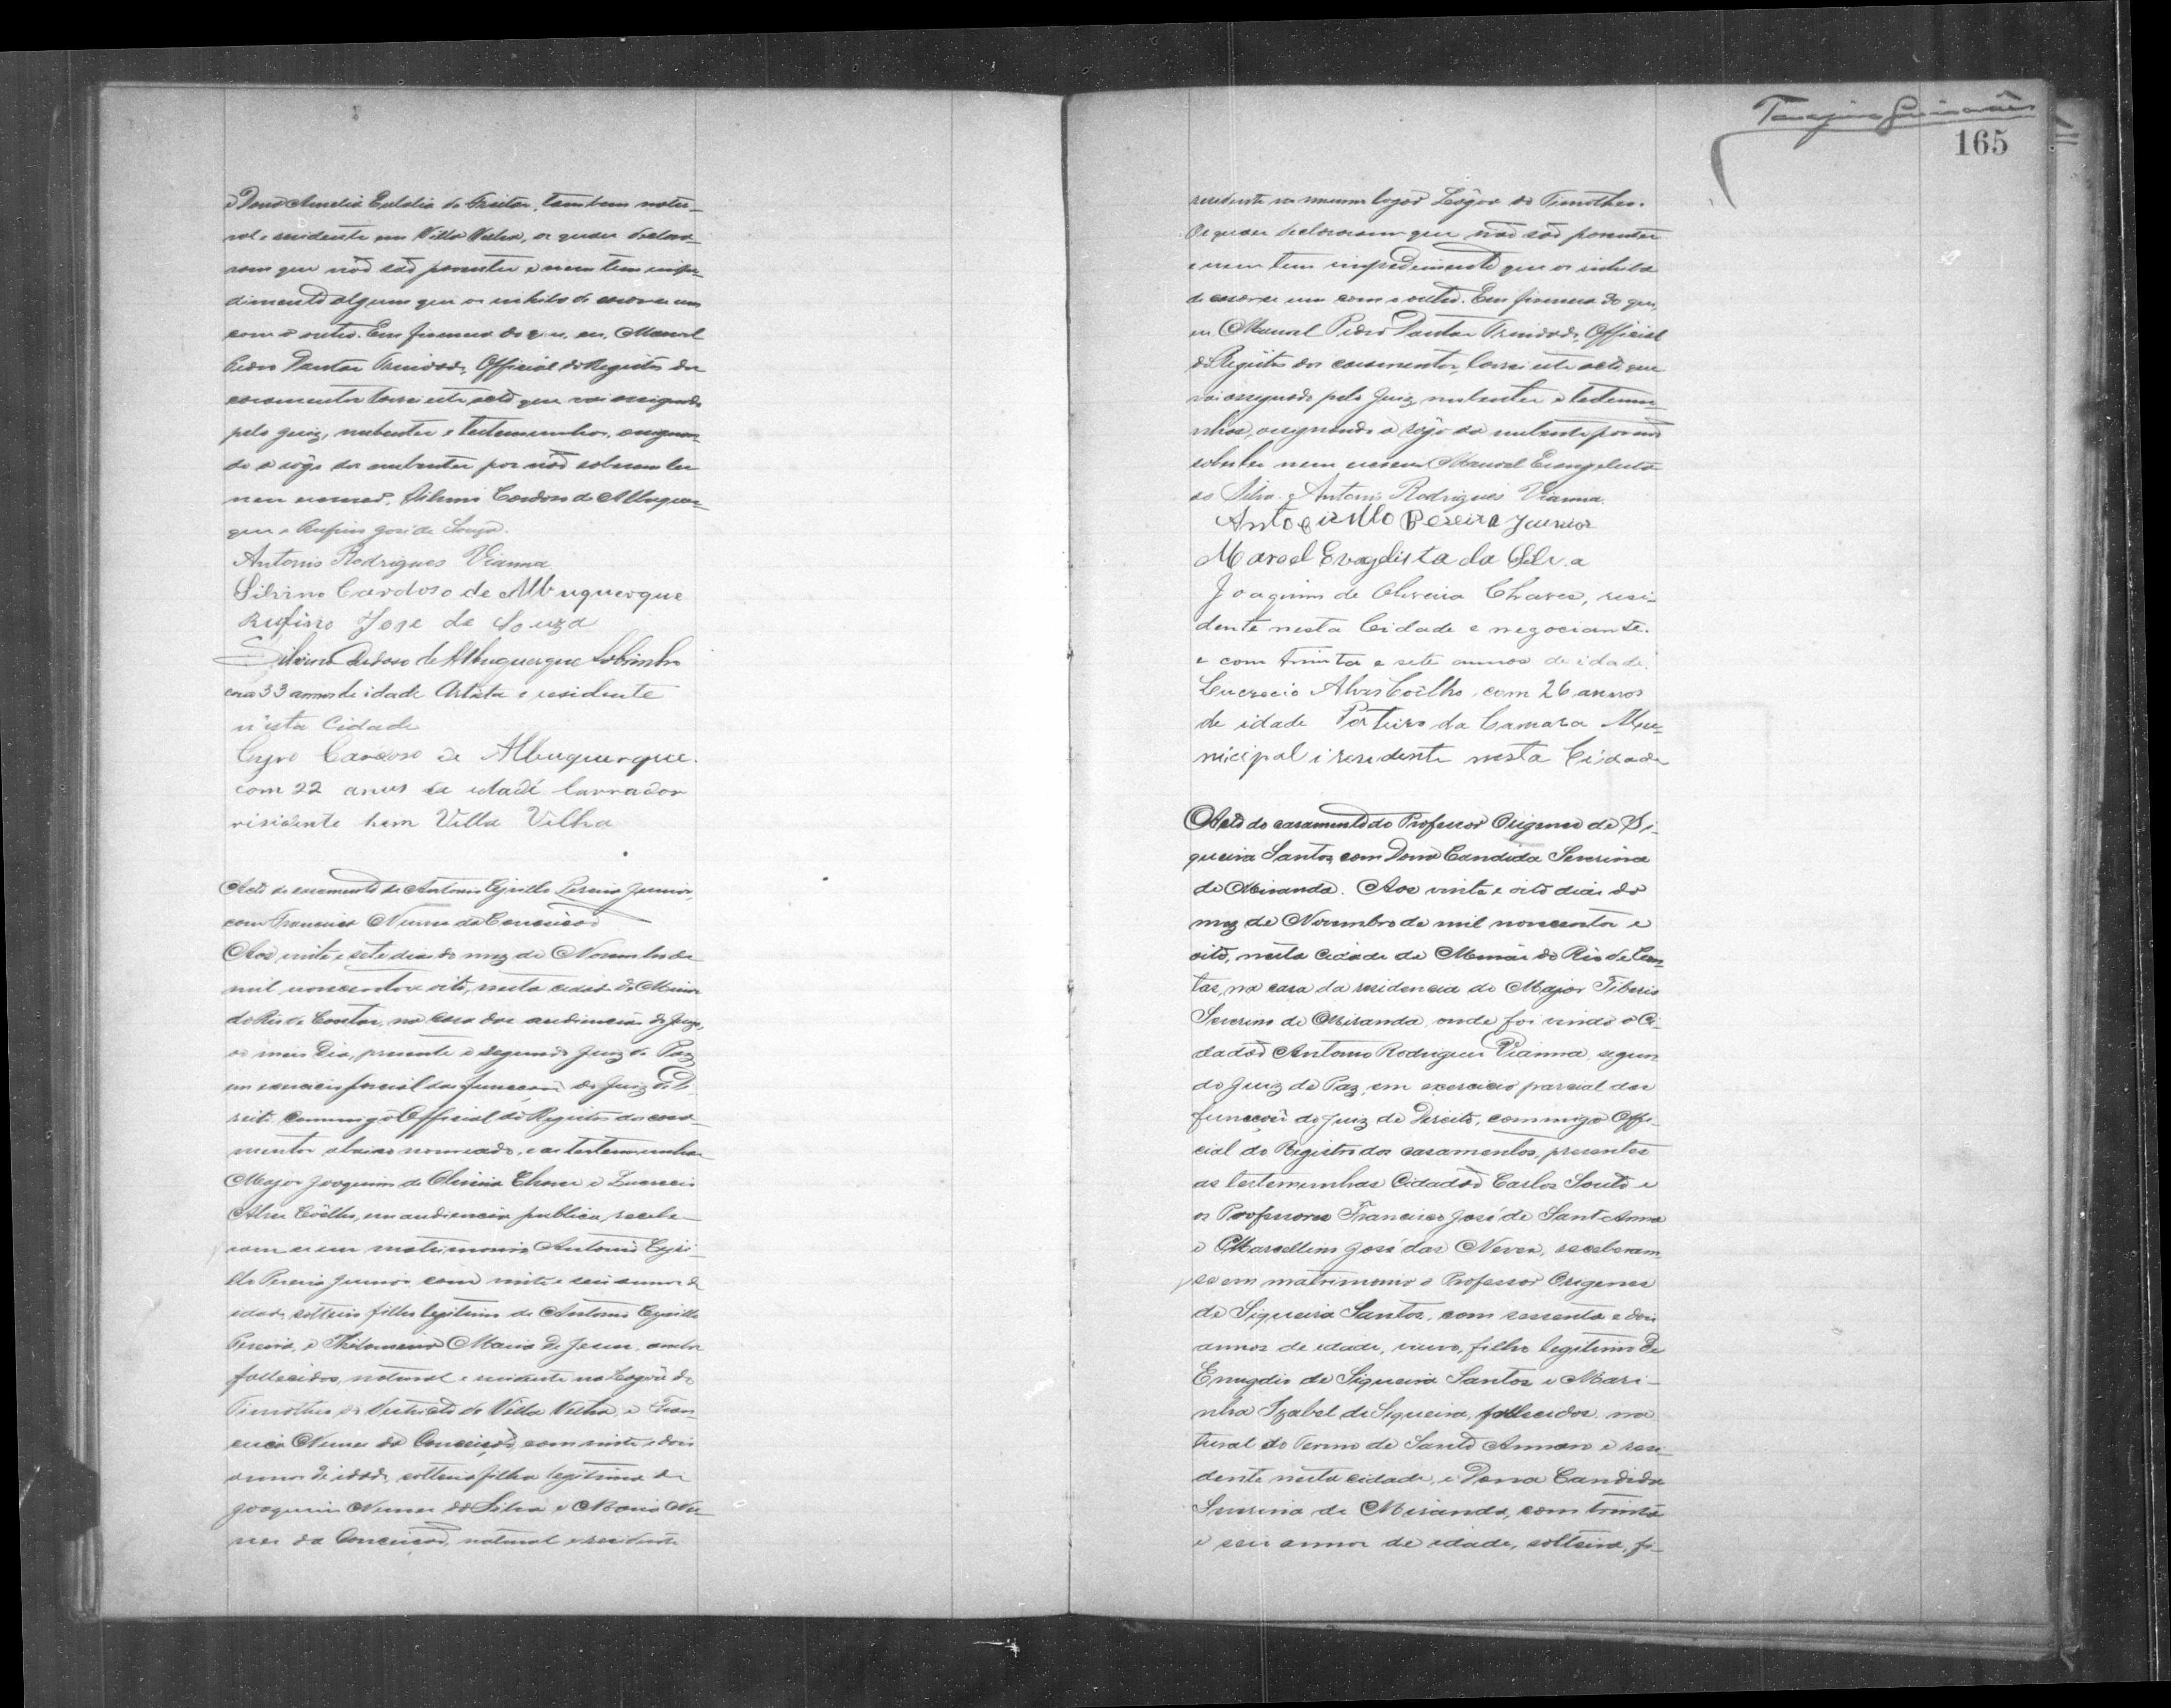 e Dona Amelia Eulalia de Freitas, tambem natu-
ral e residente em Villa Velha, os quaes declara-
ram que não são parentes e nem tem impe-
dimento algum que os inhiba de casar-se um
com o outro. Em firmeza do que, eu, Manoel
Pedro Dantas Trindade, Official do Registro dos
casamentos lavrei este acto que vai assignado
pelo Juiz, nubentes e testemunhas, assignan-
do a rôgo dos nubentes por não saberem ler
nem escrever, Silvino Cardoso de Albuquer-
que e Rufino José de Souza.
Antonio Rodrigues Vianna
Silvino Cardoso de Albuquerque
Rufino José de Souza
Silvino Cardoso de Albuquerque Sobrinho
com 33 annos de idade Artista e residente
n'esta Cidade
Cyro Cardoso de Albuquerque.
com 22 anos de idade lavrador
risidente hem Villa Vilha
Acto do casamento de Antonio Cyrillo Pereira Junior,
com Francisca Nunes da Conceição
Aos vinte e sete dias do mez de Novembro de
mil novecentos e oito, nesta cidade de Minas
do Rio de Contas, na casa das audiencias do Juizo,
ao meio dia, presente o segundo Juiz de Paz
em exercicio parcial das funcções do Juiz de Di-
reito commigo Official do Registro dos casa-
mentos abaixo nomeado, e as testemunhas
Major Joaquim de Oliveira Chaves e Lucrecio
Alves Coêlho, em audiencia publica, recebe-
ram-se em matrimonio Antonio Cyri-
llo Pereira Junior com vinte e seis annos de
idade, solteiro filho legitimo de Antonio Cyrillo
Pereira, e Philomena Maria de Jesus, ambos
fallecidos, natural e residente na Lagôa do
Timotheo, do districto de Villa Velha, e Fran-
cisca Nunes da Conceição, com vinte e dois
annos de idade, solteira filha legitima de
Joaquim Nunes da Silva e Maria Nu-
nes da Conceição, natural e residente
165
residente no mesmo logar Lagôa do Timotheo.
Os quaes declararam que não são parentes
e nem tem impedimento que os inhiba
de casar-se um com o outro. Em firmeza do que,
eu Manoel Pedro Dantas Trindade, Official
do Registro dos casamentos, lavrei este acto que
vai assignado pelo Juiz, nubentes e testemu-
nhas, assignando a rôgo da nubente por não
saber ler nem escrever Manoel Evangelista
da Silva. Antonio Rodrigues Vianna.
Antocirillo Pereira Junior
Maroel Evagelista da Silva
Joaquim de Oliveira Chaves, resi-
dente nesta Cidade e negociante.
e com trinta e sete annos de idade.
Lucrecio Alves Coêlho, com 26 annos
de idade Porteiro da Camara Mu-
nicipal i residente nesta Cidade
Acto do casamento do Professor Origenes de Si-
queira Santos com Dona Candida Severina
de Miranda. Aos vinte e oito dias do
mez de Novembro de mil novecentos e
oito, nesta cidade de Minas do Rio de Con-
tas, na casa da residencia do Major Tiberio
Severino de Miranda, onde foi vindo o Ci-
dadão Antonio Rodrigues Vianna, segun-
do Juiz de Paz, em exercicio parcial das
funcções do Juiz de Direito, commigo Offi-
cial do Registro dos casamentos, presentes
as testemunhas Cidadão Carlos Souto e
os Professores Francisco José de Sant'Anna
e Marcellino José das Neves, receberam-
se em matrimonio o Professor Origenes
de Siqueira Santos, com sessenta e dois
annos de idade, viuvo, filho legitimo de
Emygdio de Siqueira Santos e Mari-
nha Izabel de Siqueira, fallecidos, na-
tural do Termo de Santo Amaro e resi-
dente nesta cidade, e Dona Candida
Severina de Miranda, com trinta
e seis annos de idade, solteira, fi-